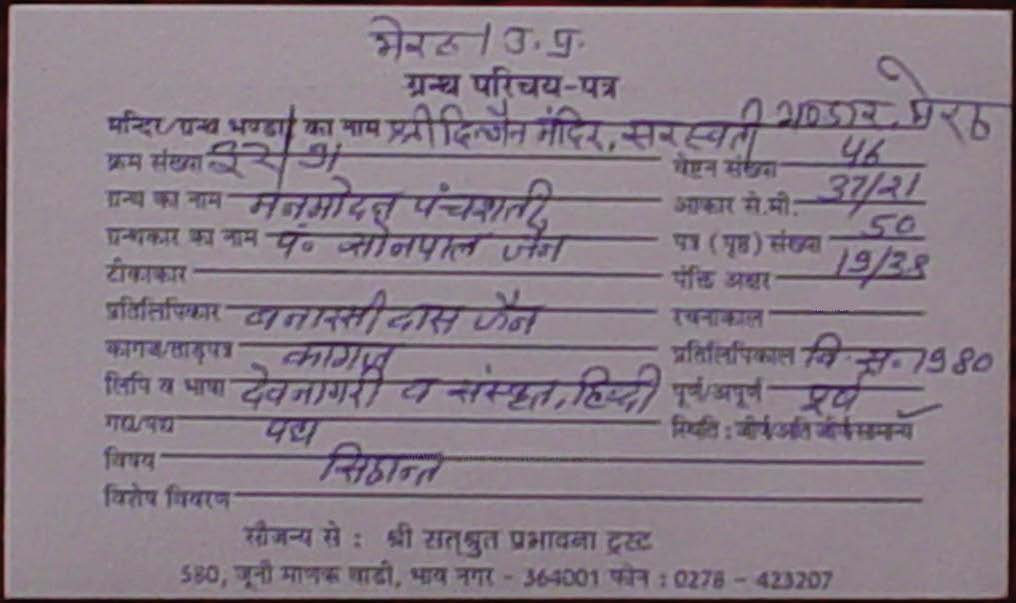 मेरठ / उ. प्र.
ग्रन्थ परिचय-पत्र
मन्दिर/ग्रन्थ भण्डार का नाम श्री दि. जैन मंदिर, सरस्वती भण्डार, मेरठ
क्रम संख्या वेष्टन संख्या 46
ग्रन्थ का नाम मनमोदन पंचशती आकार से.मी. 37/21
ग्रन्थकार का नाम पं. सोनपाल जैन पत्र (पृष्ठ) संख्या 50
टीकाकार पंक्ति अक्षर 19/38
प्रतिलिपिकार बनारसी दास जैन रचनाकाल
कागज/ताड़पत्र कागज प्रतिलिपिकाल वि. स. 1980
लिपि व भाषा देवनागरी व संस्कृत, हिन्दी पूर्ण/अपूर्ण पूर्ण
गद्य/पद्य पद्य स्थिति : जीर्ण/अति जीर्ण/सामान्य ✓
विषय सिद्धान्त
विशेष विवरण
सौजन्य से : श्री सत्श्रुत प्रभावना ट्रस्ट
580, जूनी माणक वाडी, भाव नगर - 364001 फोन : 0278 - 423207